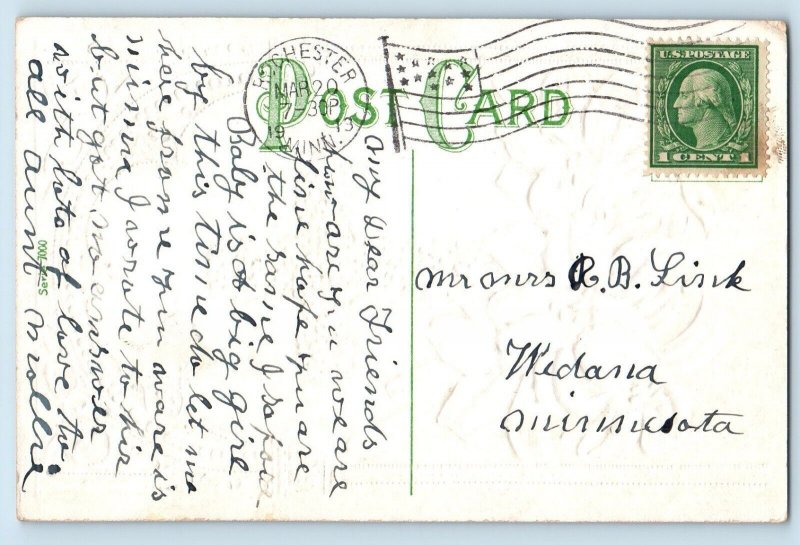 POST CARD
ROCHESTER
MAR 20
7-30P
19 13
MINN.
U.S. POSTAGE
1 CENT 1
Mr &Mrs R. B. Lisk
Wedana
Minnesota
My Dear Friends
how are you we are
fine hope you are
the same I supose
Baby is A big girl
by this time do let me
here from you ware is
minna I wrote to hir
but got no answer
with lots of love to
all aunt Mollie
Series 7000